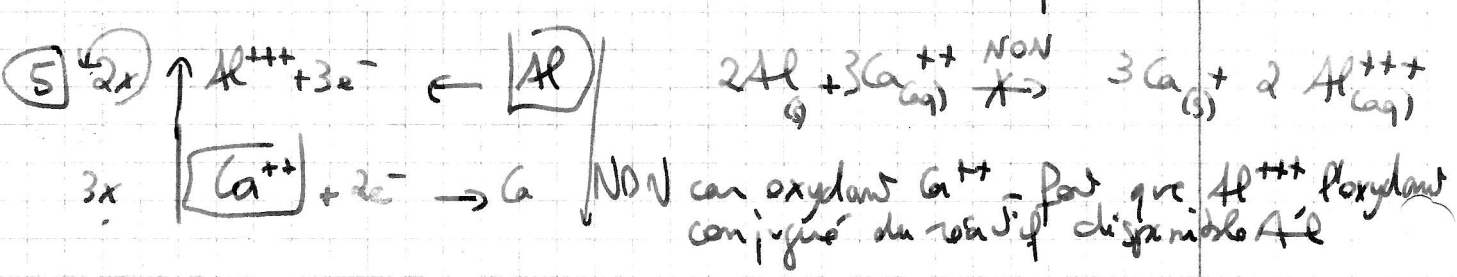 5 2x Al+++ + 3e- ← Al 2Al(s) + 3Ca++(aq) NON → 3Ca(s) + 2 Al+++(aq)
3x Ca++ + 2e- → Ca NON car oxydant Ca++ - fort que Al+++ l'oxydant
conjugué du réductif disponible Al